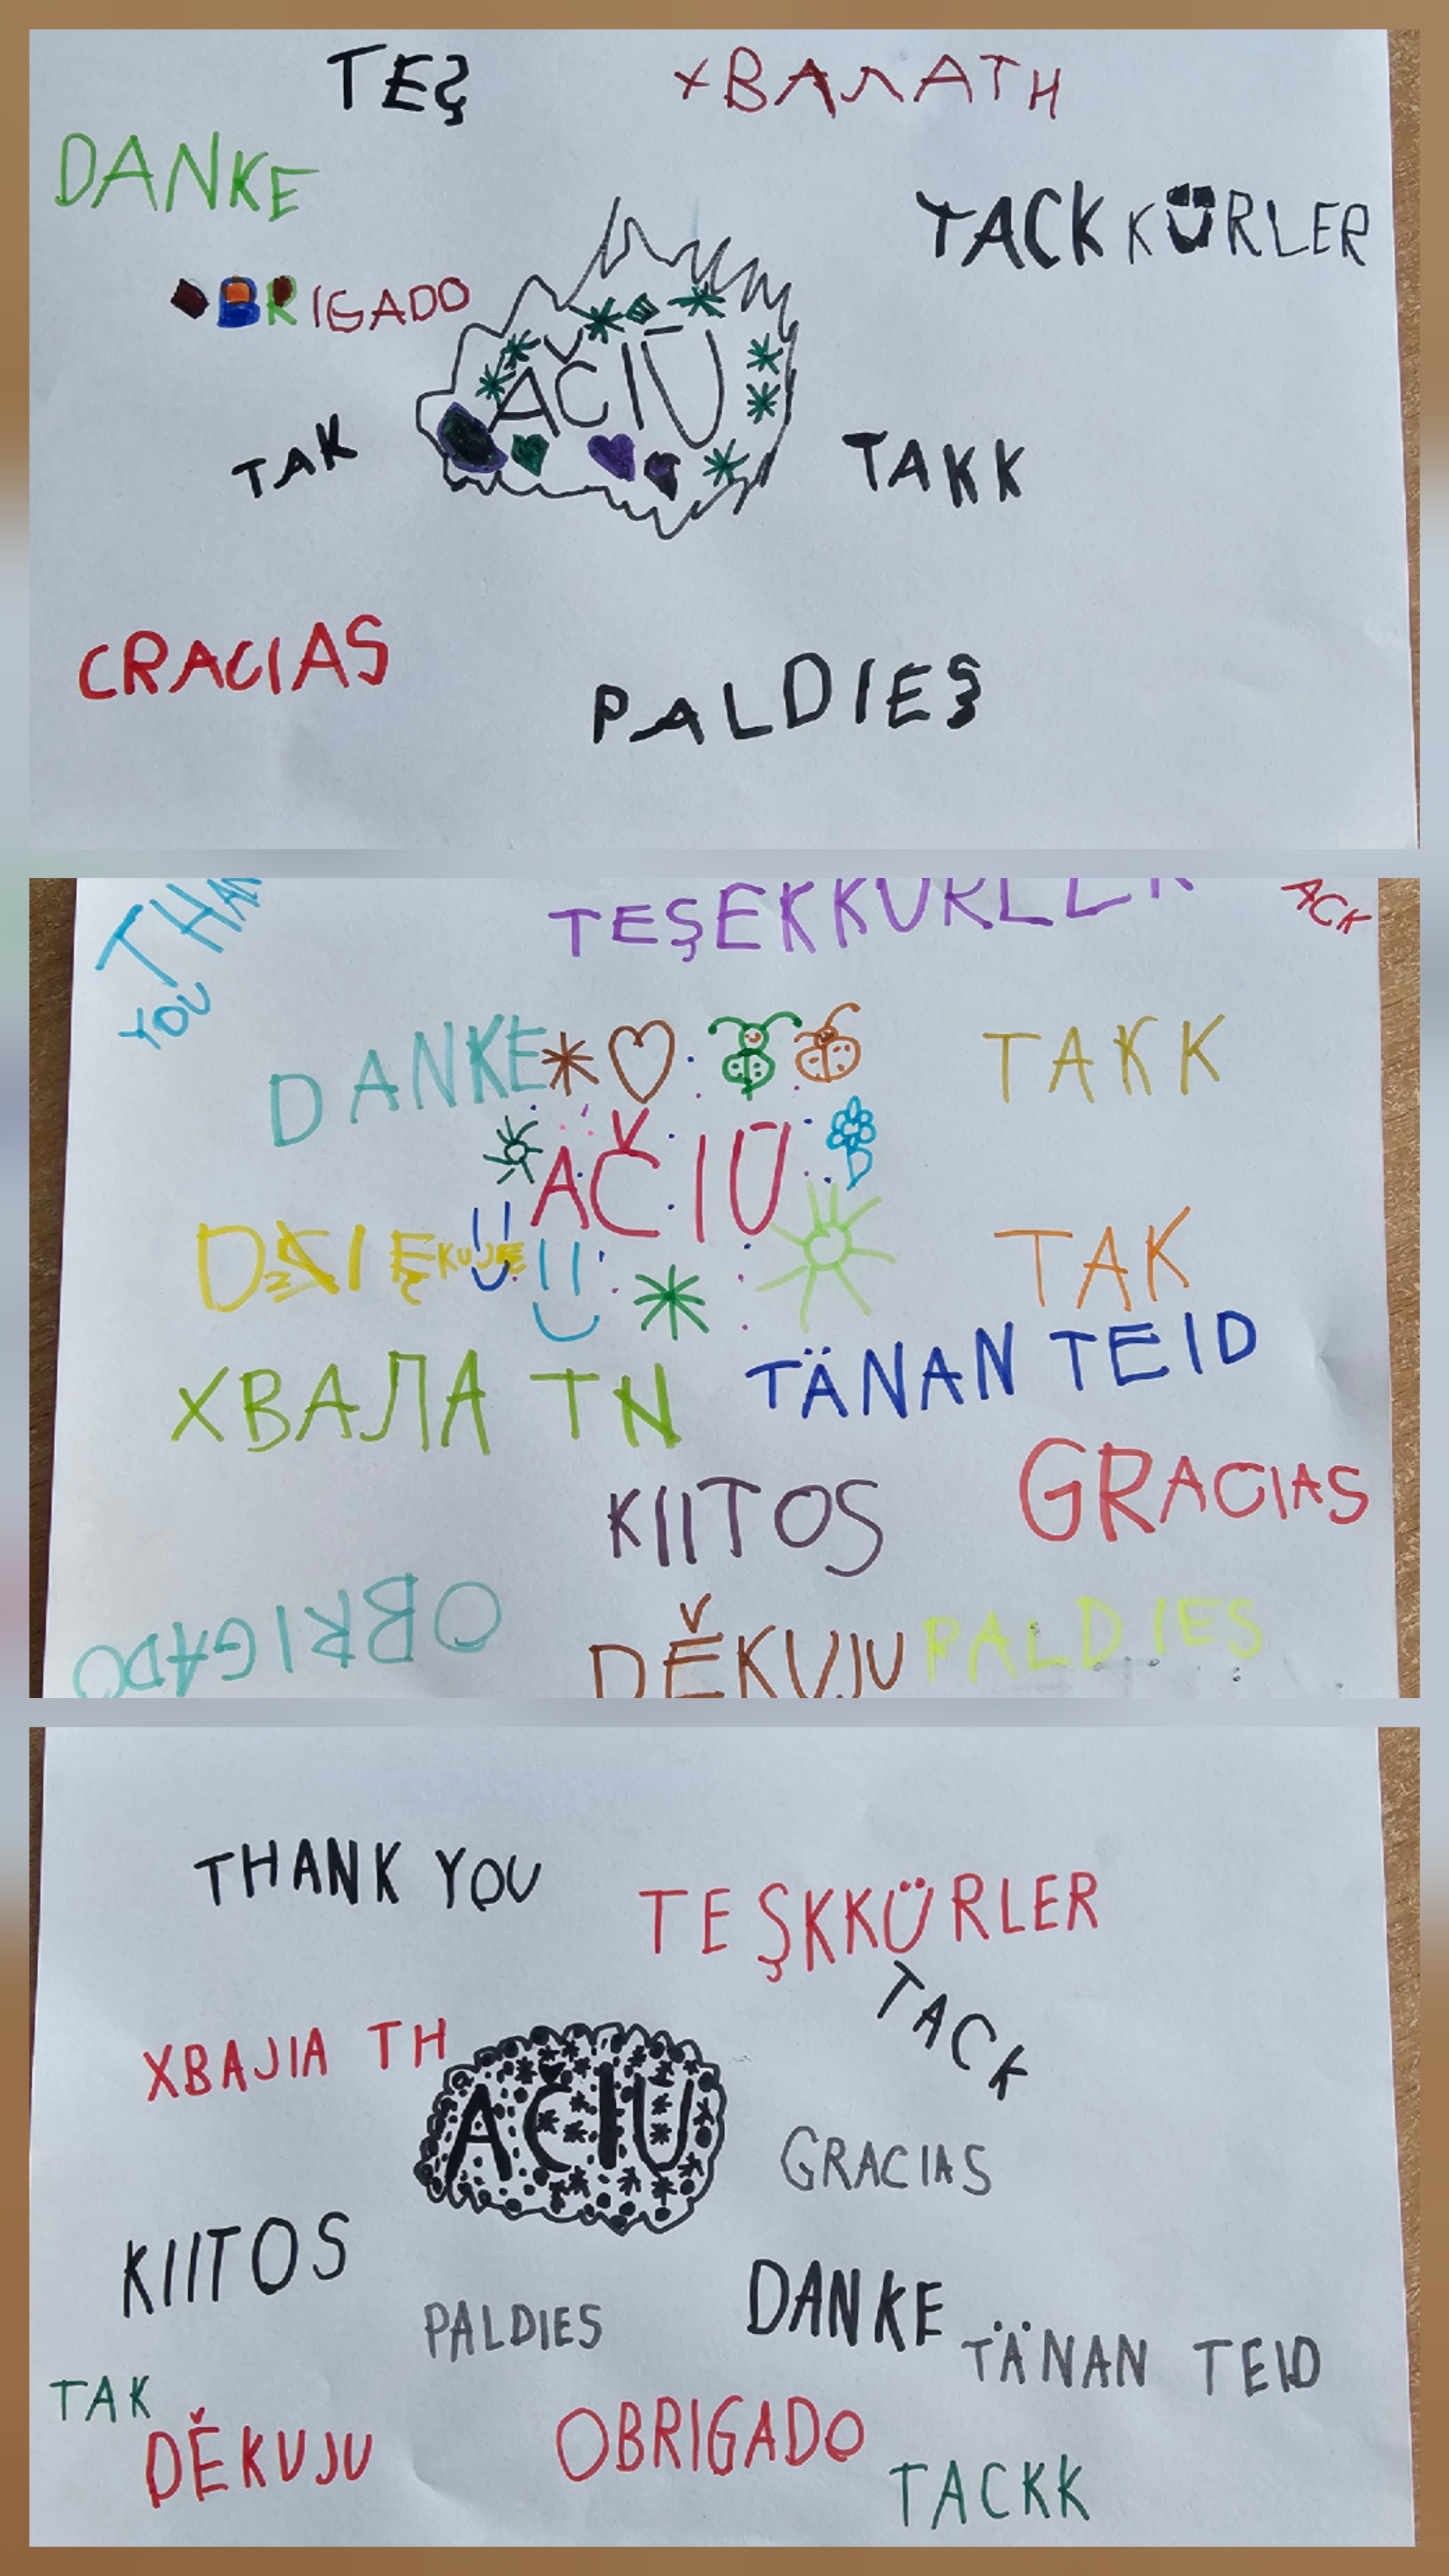 TEŞ
ХВАЛАТН
DANKE
TACKKÜRLER
OBRIGADO
AČIŪ
TAK
TAKK
CRACIAS
PALDIES
THAN
YOU
TEŞEKKURLER
ACK
DANKE
TAKK
AČIŪ
DZIĘKUJĘ
TAK
ХВАЛА TN
TÄNAN TEID
KIITOS
GRACIAS
OBRIGADO
DĚKUJU
PALDIES
THANK YOU
TEŞKKÜRLER
TACK
XBAJIA TH
AČIU
GRACIAS
KIITOS
DANKE
PALDIES
TÄNAN TEID
TAK
DĚKUJU
OBRIGADO
TACKK